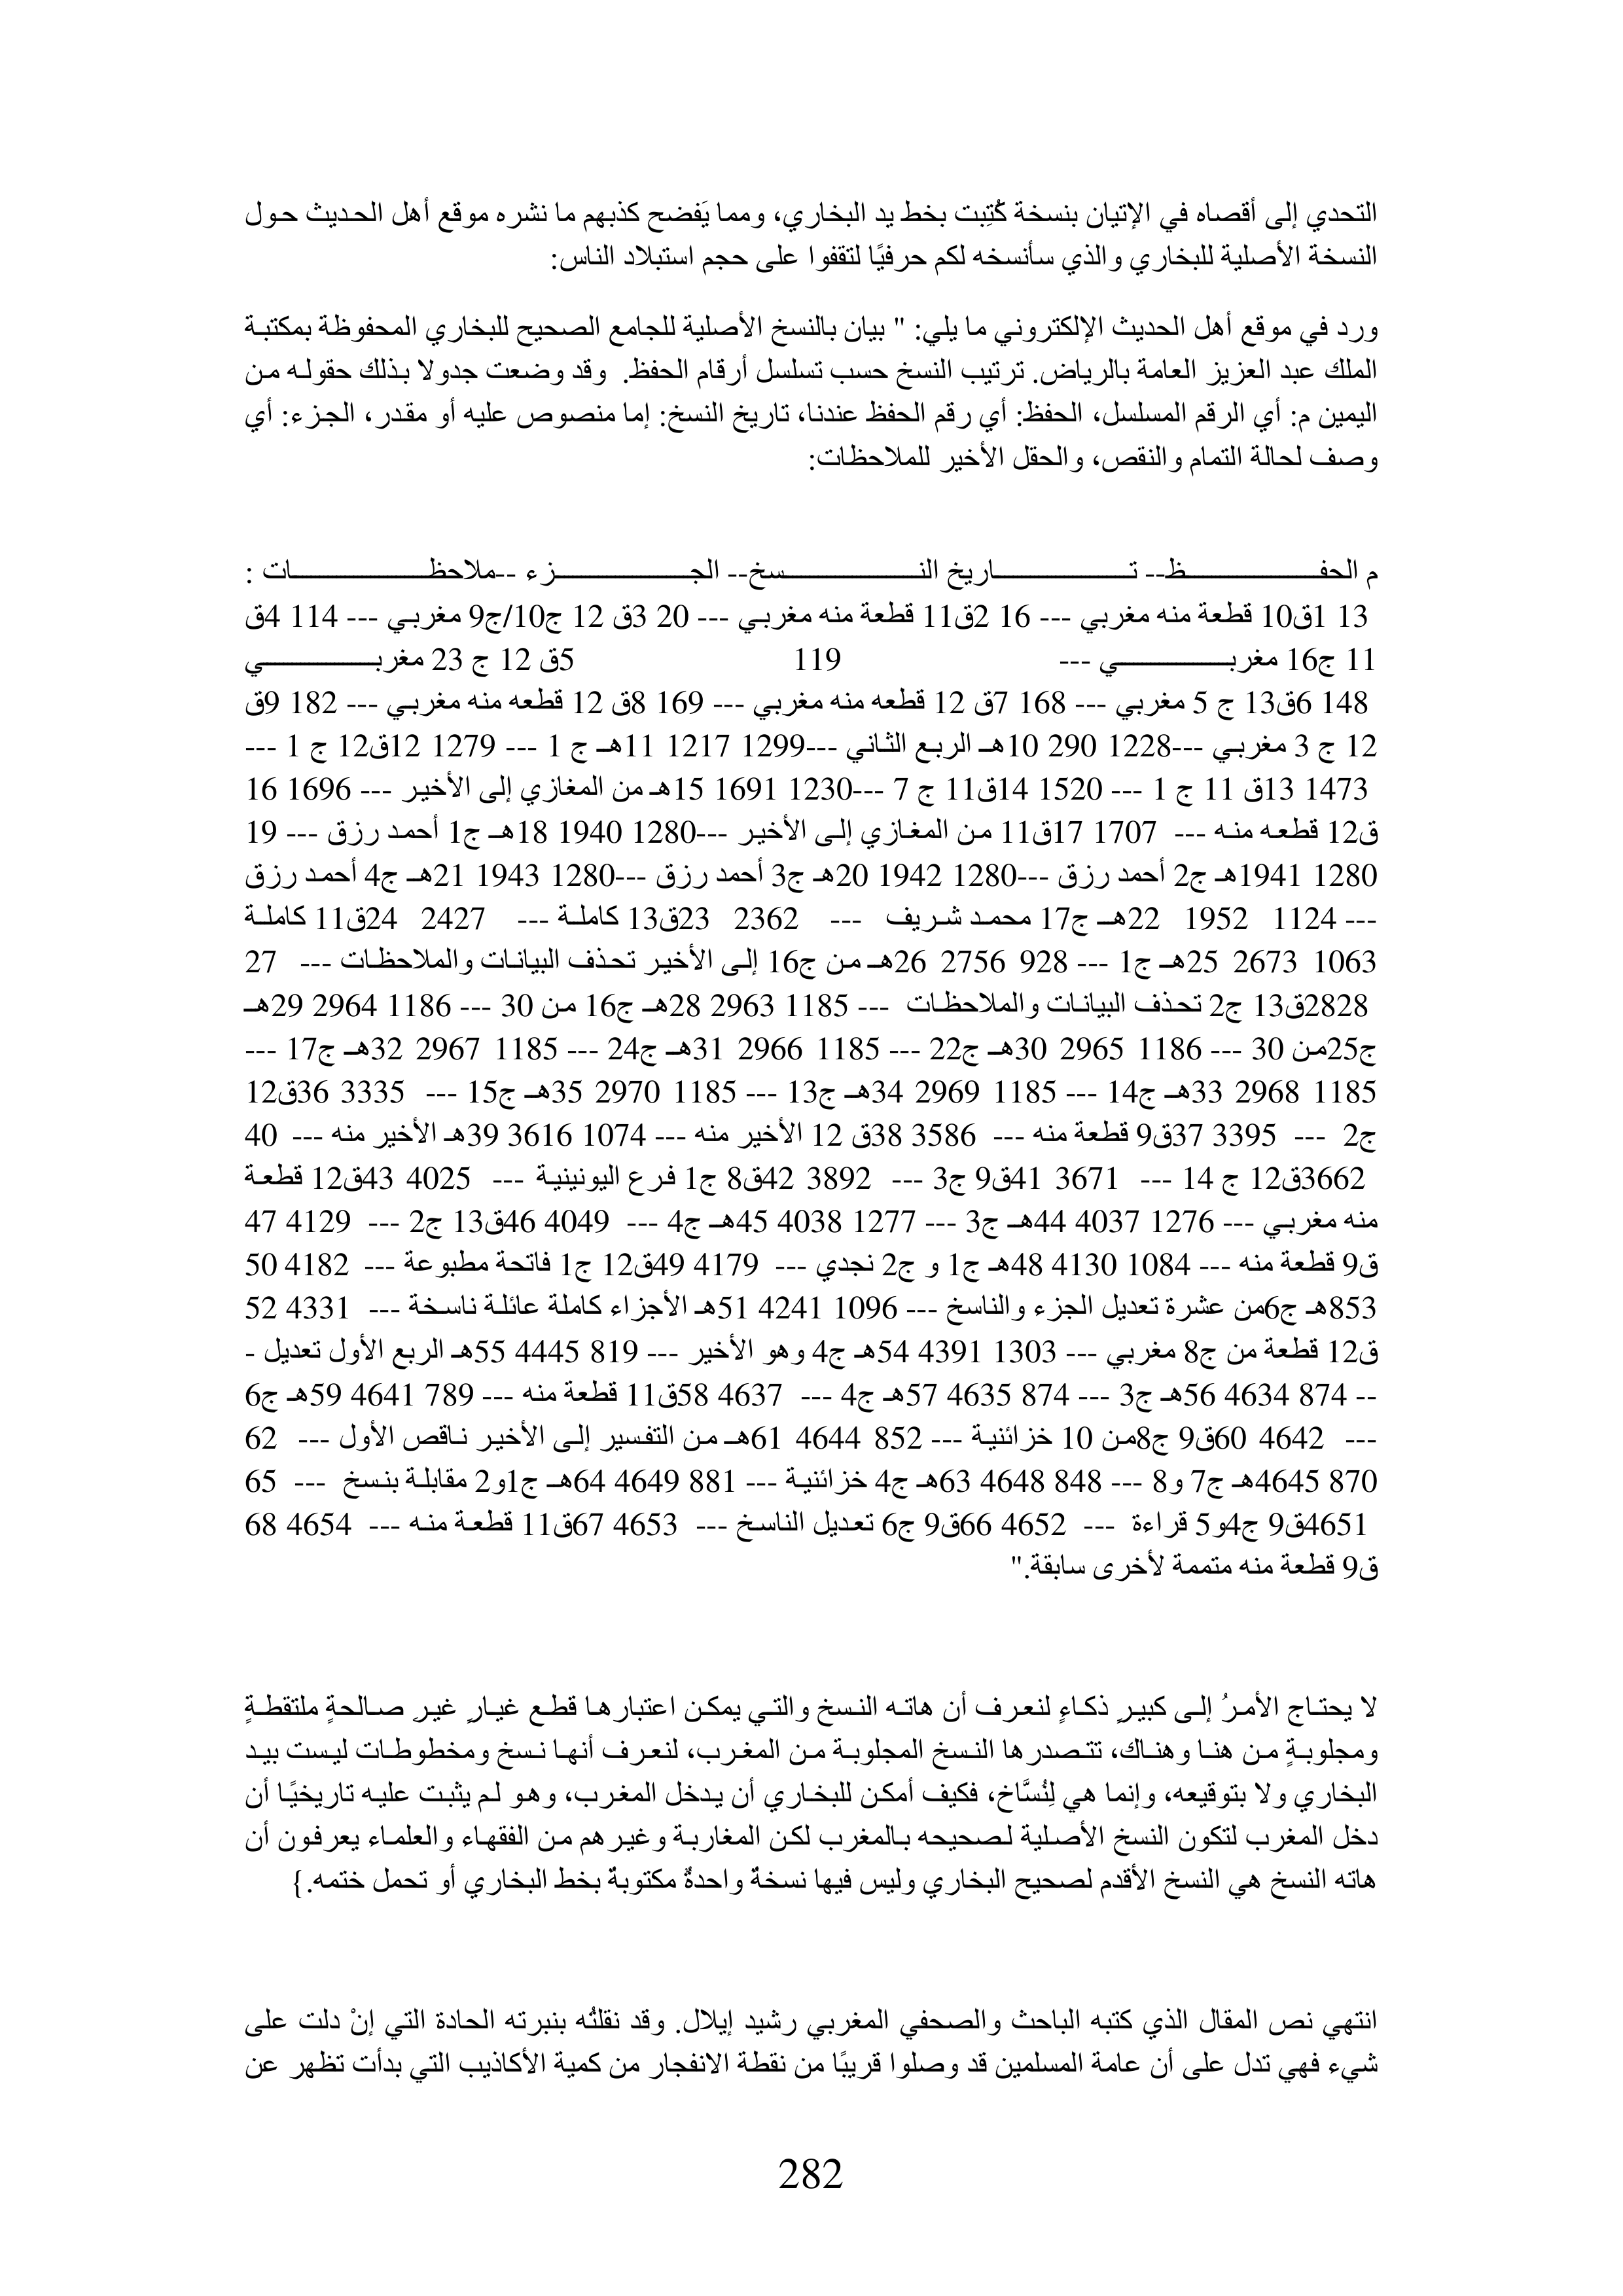 التحدي إلى أقصاه في الإتيان بنسخة كُتِبت بخط يد البخاري، ومما يَفضح كذبهم ما نشره موقع أهل الحديث حول
النسخة الأصلية للبخاري والذي سأنسخه لكم حرفيًا لتقفوا على حجم استبلاد الناس:
ورد في موقع أهل الحديث الإلكتروني ما يلي: " بيان بالنسخ الأصلية للجامع الصحيح للبخاري المحفوظة بمكتبة
الملك عبد العزيز العامة بالرياض. ترتيب النسخ حسب تسلسل أرقام الحفظ. وقد وضعت جدولا بذلك حقوله من
اليمين م: أي الرقم المسلسل، الحفظ: أي رقم الحفظ عندنا، تاريخ النسخ: إما منصوص عليه أو مقدر، الجزء: أي
وصف لحالة التمام والنقص، والحقل الأخير للملاحظات:
م الحفـــظ-- تـــاريخ النـــسخ-- الجـــزء --ملاحظـــات :
13 1ق10 قطعة منه مغربي --- 16 2ق11 قطعة منه مغربي --- 20 3ق 12 ج10/ج9 مغربي --- 114 4ق
11 ج16 مغربـــي --- 119 5ق 12 ج 23 مغربـــي
148 6ق13 ج 5 مغربي --- 168 7ق 12 قطعه منه مغربي --- 169 8ق 12 قطعه منه مغربي --- 182 9ق
12 ج 3 مغربي ---1228 290 10هـ الربع الثاني ---1299 1217 11هـ ج 1 --- 1279 12ق12 ج 1 ---
1473 13ق 11 ج 1 --- 1520 14ق11 ج 7 ---1230 1691 15هـ من المغازي إلى الأخير --- 1696 16
ق12 قطعه منه --- 1707 17ق11 من المغازي إلى الأخير ---1280 1940 18هـ ج1 أحمد رزق --- 19
1280 1941هـ ج2 أحمد رزق ---1280 1942 20هـ ج3 أحمد رزق ---1280 1943 21هـ ج4 أحمد رزق
--- 1124 1952 22هـ ج17 محمد شريف --- 2362 23ق13 كاملة --- 2427 24ق11 كاملة
1063 2673 25هـ ج1 --- 928 2756 26هـ من ج16 إلى الأخير تحذف البيانات والملاحظات --- 27
2828ق13 ج2 تحذف البيانات والملاحظات --- 1185 2963 28هـ ج16 من 30 --- 1186 2964 29هـ
ج25من 30 --- 1186 2965 30هـ ج22 --- 1185 2966 31هـ ج24 --- 1185 2967 32هـ ج17 ---
1185 2968 33هـ ج14 --- 1185 2969 34هـ ج13 --- 1185 2970 35هـ ج15 --- 3335 36ق12
ج2 --- 3395 37ق9 قطعة منه --- 3586 38ق 12 الأخير منه --- 1074 3616 39هـ الأخير منه --- 40
3662ق12 ج 14 --- 3671 41ق9 ج3 --- 3892 42ق8 ج1 فرع اليونينية --- 4025 43ق12 قطعة
منه مغربي --- 1276 4037 44هـ ج3 --- 1277 4038 45هـ ج4 --- 4049 46ق13 ج2 --- 4129 47
ق9 قطعة منه --- 1084 4130 48هـ ج1 و ج2 نجدي --- 4179 49ق12 ج1 فاتحة مطبوعة --- 4182 50
853هـ ج6من عشرة تعديل الجزء والناسخ --- 1096 4241 51هـ الأجزاء كاملة عائلة ناسخة --- 4331 52
ق12 قطعة من ج8 مغربي --- 1303 4391 54هـ ج4 وهو الأخير --- 819 4445 55هـ الربع الأول تعديل -
-- 874 4634 56هـ ج3 --- 874 4635 57هـ ج4 --- 4637 58ق11 قطعة منه --- 789 4641 59هـ ج6
--- 4642 60ق9 ج8من 10 خزائنية --- 852 4644 61هـ من التفسير إلى الأخير ناقص الأول --- 62
870 4645هـ ج7 و8 --- 848 4648 63هـ ج4 خزائنية --- 881 4649 64هـ ج1و2 مقابلة بنسخ --- 65
4651ق9 ج4و5 قراءة --- 4652 66ق9 ج6 تعديل الناسخ --- 4653 67ق11 قطعة منه --- 4654 68
ق9 قطعة منه متممة لأخرى سابقة."
لا يحتاج الأمرُ إلى كبيرِ ذكاءٍ لنعرف أن هاته النسخ والتي يمكن اعتبارها قطع غيارٍ غيرِ صالحةٍ ملتقطةٍ
ومجلوبةٍ من هنا وهناك، تتصدرها النسخ المجلوبة من المغرب، لنعرف أنها نسخ ومخطوطات ليست بيد
البخاري ولا بتوقيعه، وإنما هي لِنُسَّاخ، فكيف أمكن للبخاري أن يدخل المغرب، وهو لم يثبت عليه تاريخيًا أن
دخل المغرب لتكون النسخ الأصلية لصحيحه بالمغرب لكن المغاربة وغيرهم من الفقهاء والعلماء يعرفون أن
هاته النسخ هي النسخ الأقدم لصحيح البخاري وليس فيها نسخةٌ واحدةٌ مكتوبةٌ بخط البخاري أو تحمل ختمه.}
انتهي نص المقال الذي كتبه الباحث والصحفي المغربي رشيد إيلال. وقد نقلتُه بنبرته الحادة التي إنْ دلت على
شيء فهي تدل على أن عامة المسلمين قد وصلوا قريبًا من نقطة الانفجار من كمية الأكاذيب التي بدأت تظهر عن
282